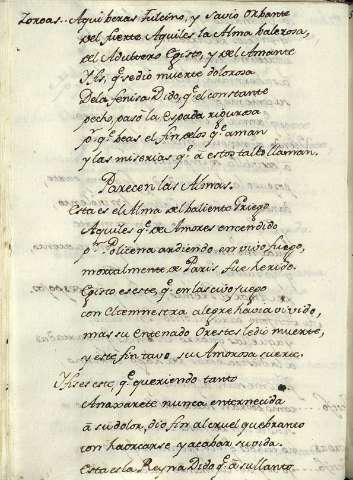 Zoroas.. Aqui beras Fulcino, y Savio Orbante
del fuerte Aquiles la Alma balerosa,
del Adultero Egisto, y del Amante
Ifis, q.e se dio muerte dolorosa
De la fenisa Dido, q.e el constante
pecho, pasó la Espada rigurosa
p.r q.e beas el fin de los q.e aman
y las miserias q.e a estos talto llaman.
Parecen las Almas.
Esta es el Alma del baliente Griego
Aquiles q.e de Amores encendido
p.r Policena ardiendo en vivo fuego,
mortalmente de Paris fue herido.
Egisto es este, q.e en lascivo fuego
con Clemnestra alegre havia vivido,
mas su entenado Orestes le dió muerte,
y este fin tuvo su Amorosa suerte.
Ifis es este, q.e queriendo tanto
Anaxarete nunca enternecida
â su dolor, dio fin al cruel quebranto
con haorcarse y acabar su vida.
Esta es la Reyna Dido q.e â su llanto